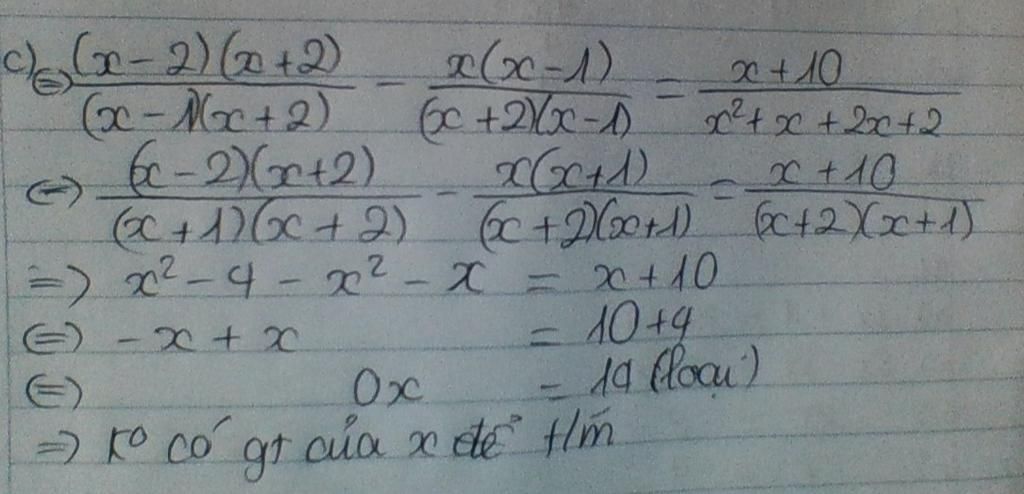 c) ⇔ (x-2)(x+2)/(x-1)(x+2) - x(x-1)/(x+2)(x-1) = x+10/x²+x+2x+2
⇔ (x-2)(x+2)/(x+1)(x+2) - x(x+1)/(x+2)(x+1) = x+10/(x+2)(x+1)
⇒ x²-4-x²-x = x+10
⇔ -x+x = 10+4
⇔ 0x = 14 (loại)
⇒ Ko có gt của x để t/m